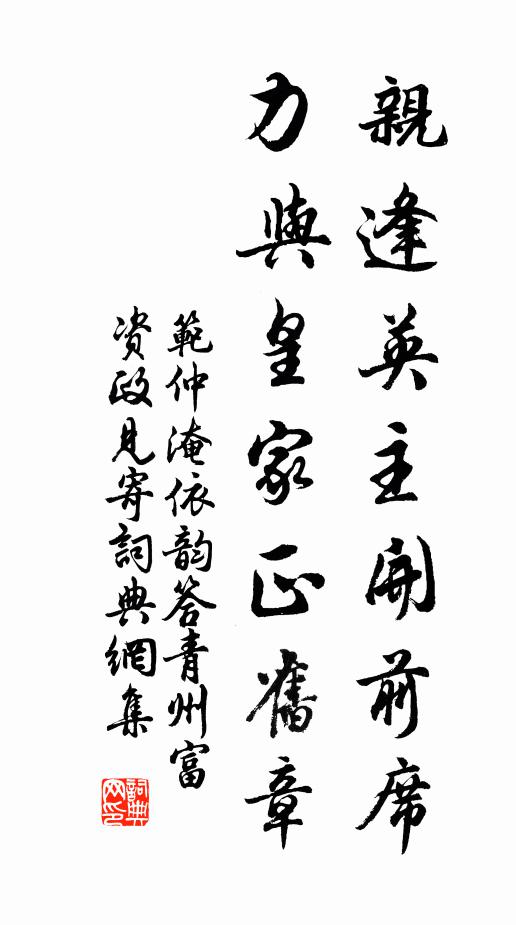 親逢英主開前席
力與皇家正舊章
範仲淹依韵答青州富
资政見寄詞典網集
詞典
网印